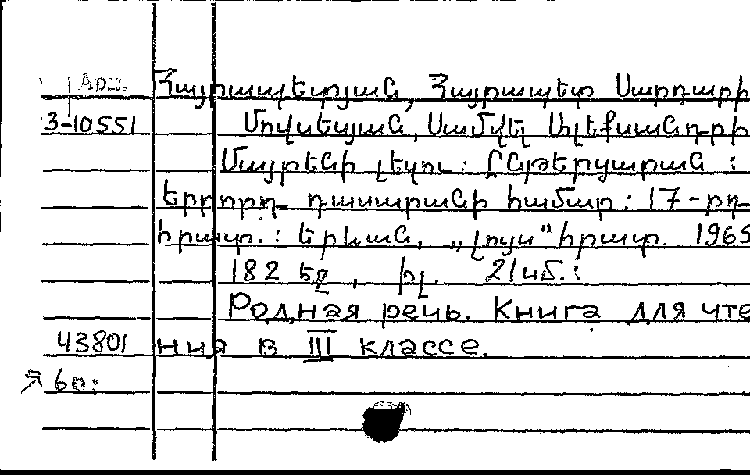 Арм. Հայրապետյան, Հայրապետ Սարդարի
3-10551 Մովսեսյան, Սամվել Ալեքսանդրի
Մայրենի լեզու: Ընթերցարան:
Երրորդ դասարանի համար: 17-րդ
հրատ.: Երևան, „Լույս" հրատ. 1965
182 էջ, իլ. 21սմ.:
Родная речь. Книга для чте
43801 ния в III классе.